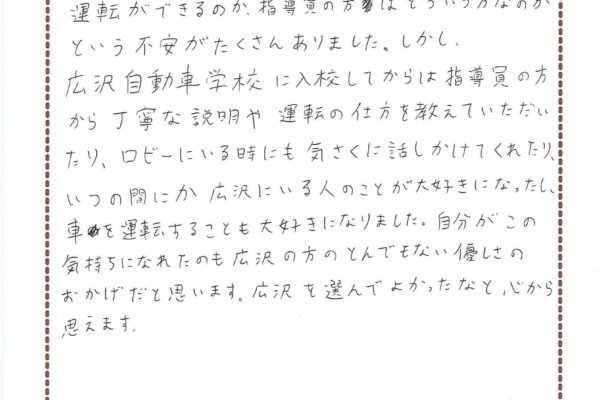 運転ができるのか、指導員の方はどういう方なのか
という不安がたくさんありました。しかし、
広沢自動車学校に入校してからは指導員の方
から丁寧な説明や運転の仕方を教えていただい
たり、ロビーにいる時にも気さくに話しかけてくれたり、
いつの間にか広沢にいる人のことが大好きになったし、
車を運転することも大好きになりました。自分がこの
気持ちになれたのも広沢の方のとんでもない優しさの
おかげだと思います。広沢を選んでよかったなと、心から
思えます。